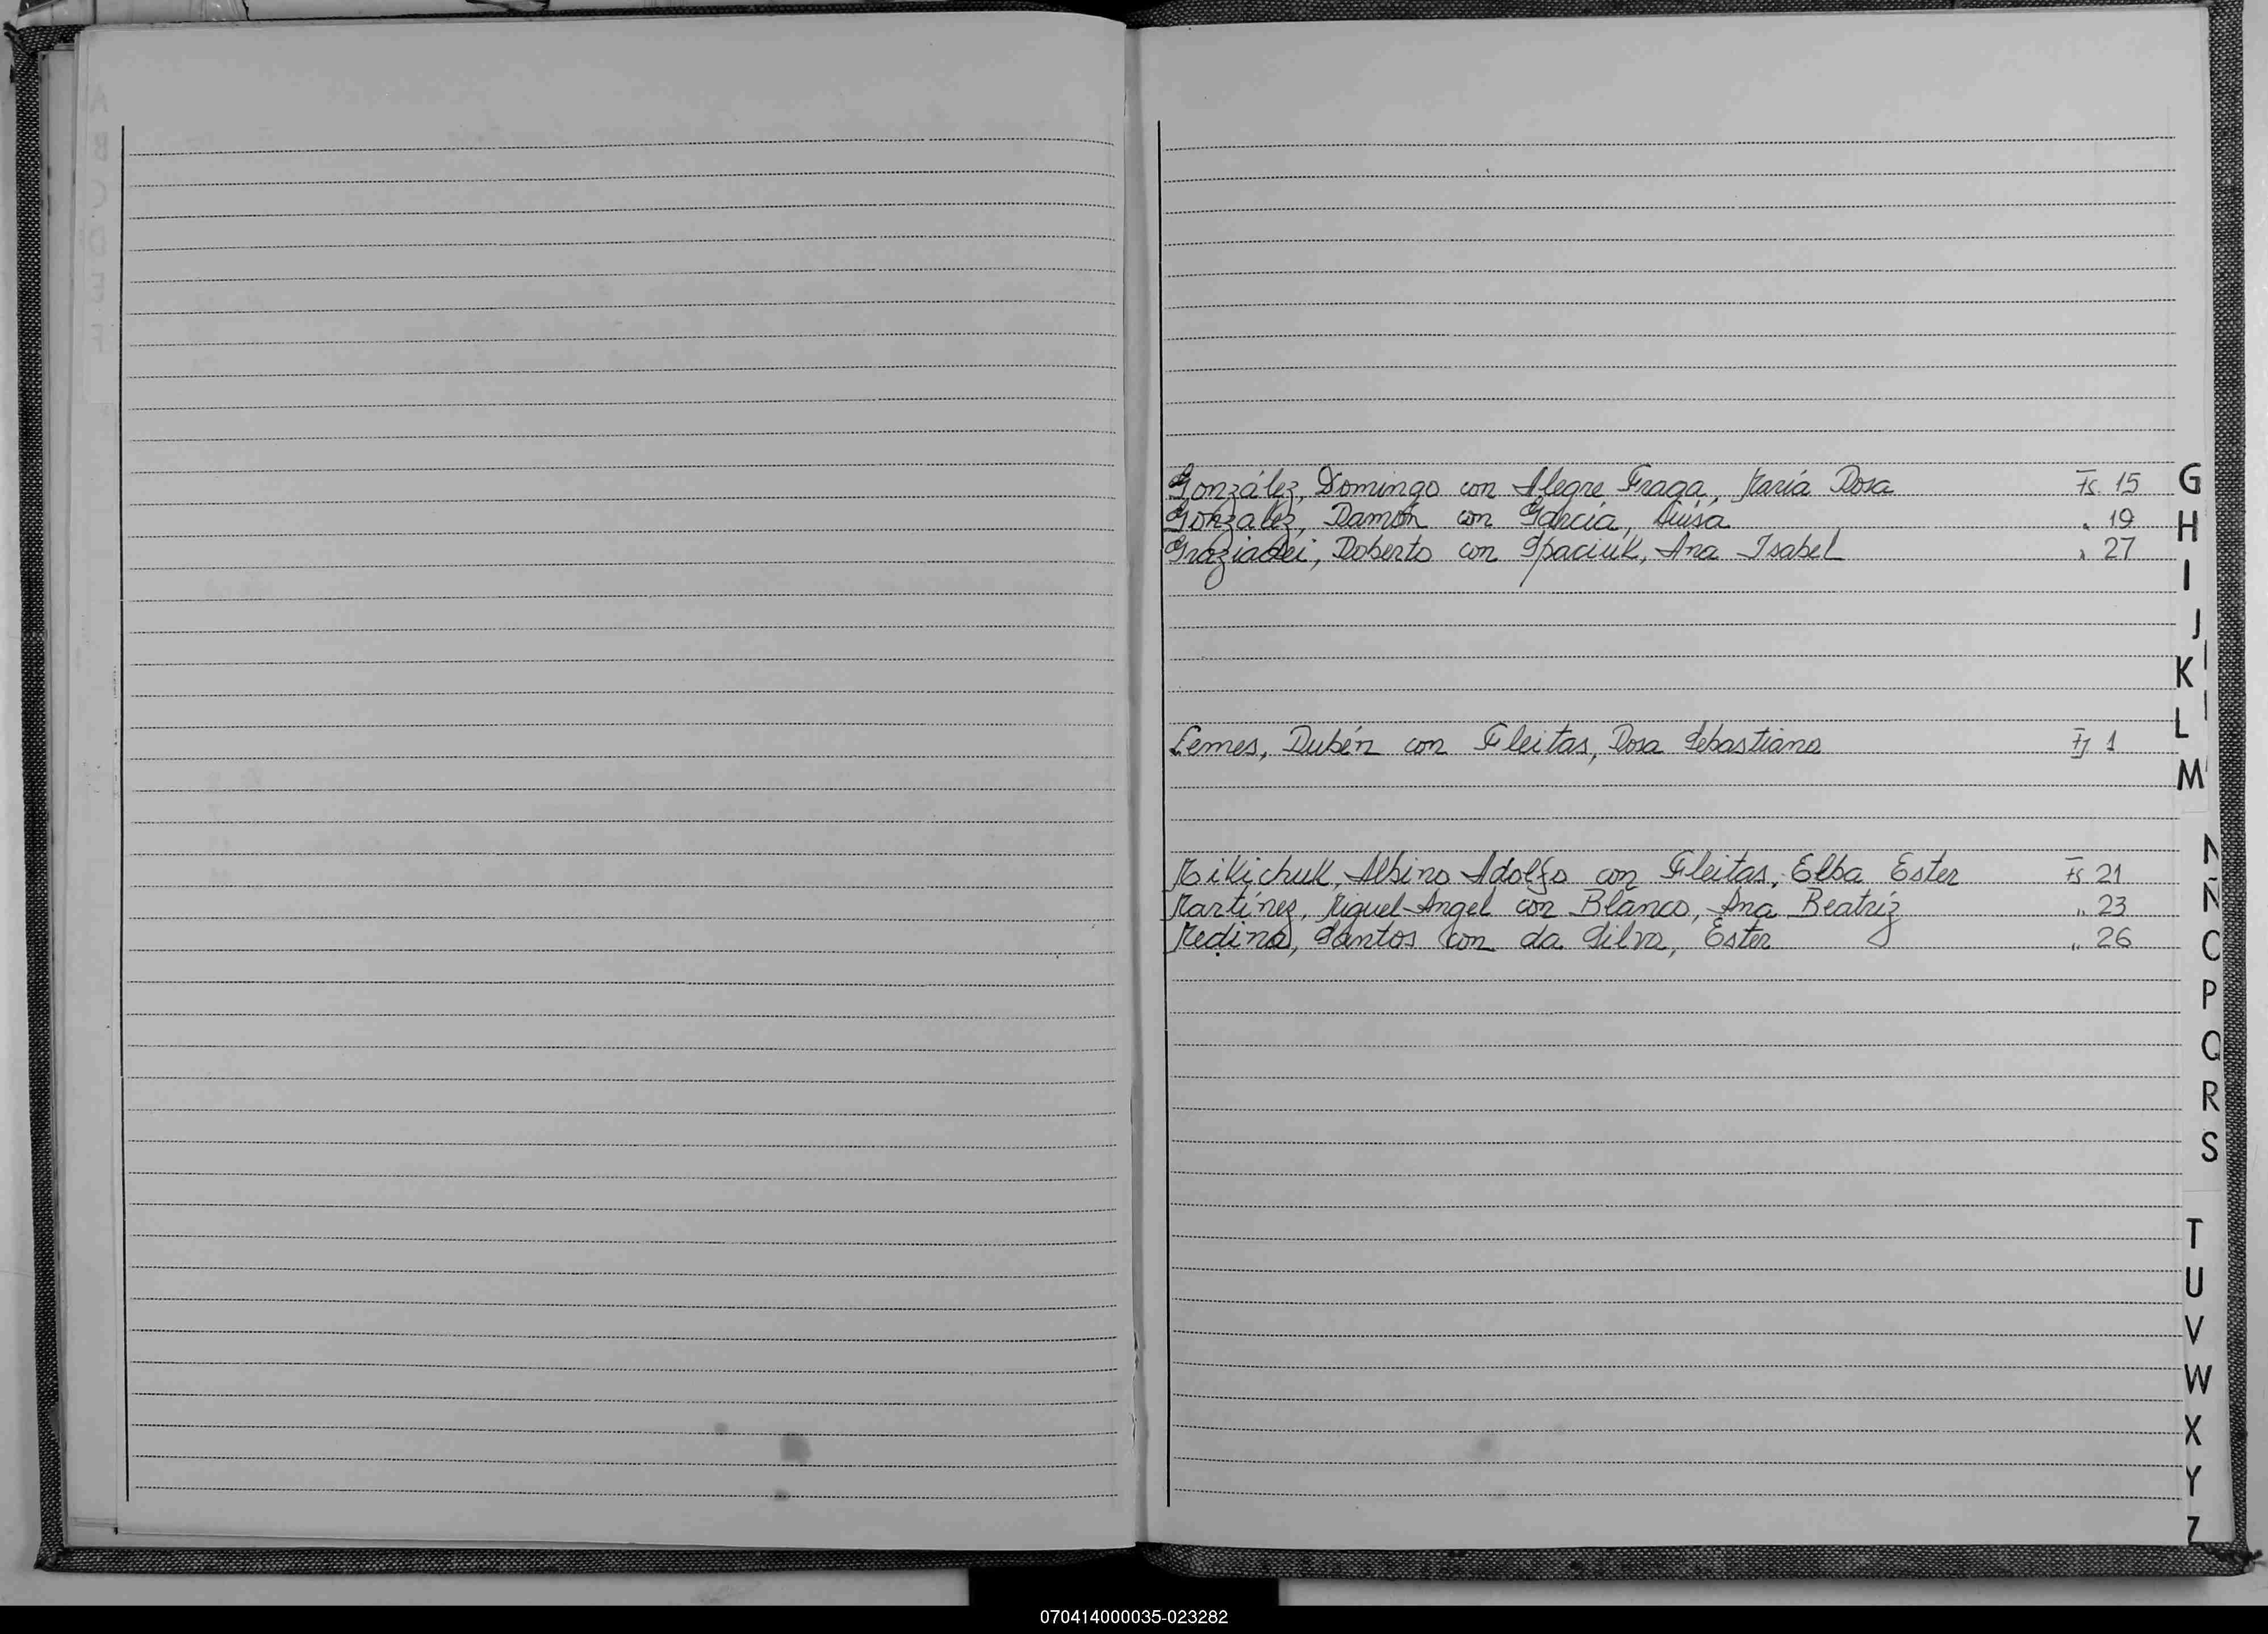 González, Domingo con Alegre Fraga, María Rosa Fs. 15 G
González, Ramón con García, Luisa " 19 H
Graziadei, Roberto con Spaciuk, Ana Isabel " 27
I
J
K
L
Lemes, Rubén con Fleitas, Rosa Sebastiana Fj 1
M
N
Mikichuk, Albino Adolfo con Fleitas, Elba Ester Fs 21
Ñ
Martínez, Miguel Angel con Blanco, Ana Beatriz " 23
Medina, Santos con da Silva, Ester " 26
O
P
Q
R
S
T
U
V
W
X
Y
Z
070414000035-023282